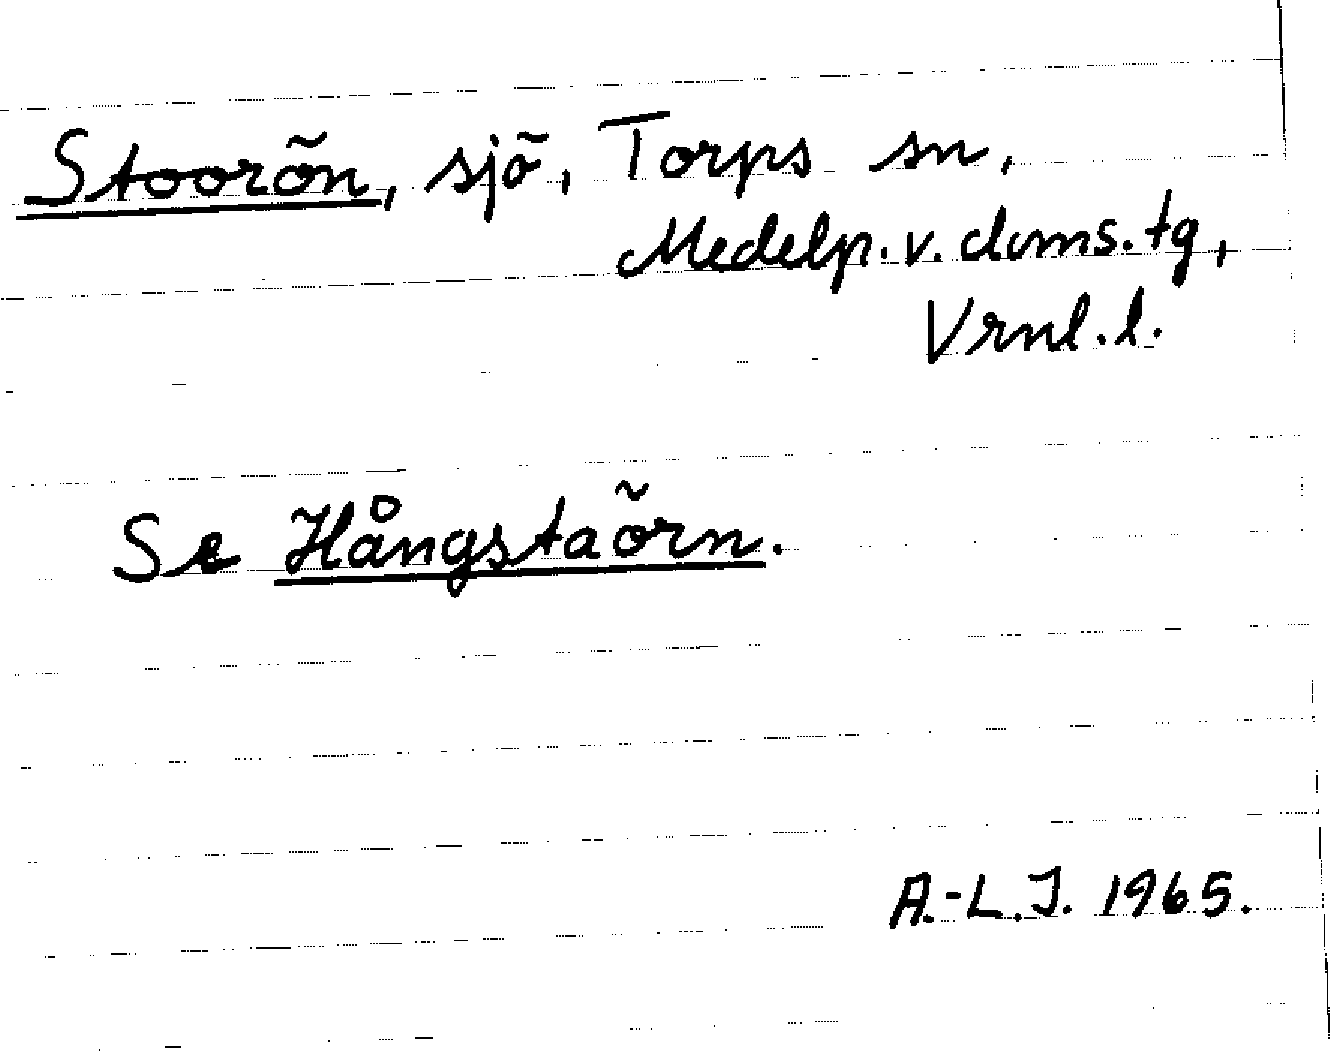 Stoorön, sjö, Torps sn,
Medelp. v. doms. tg,
Vrnl. l.
Se Hångstaörn.
A.-L.J. 1965.